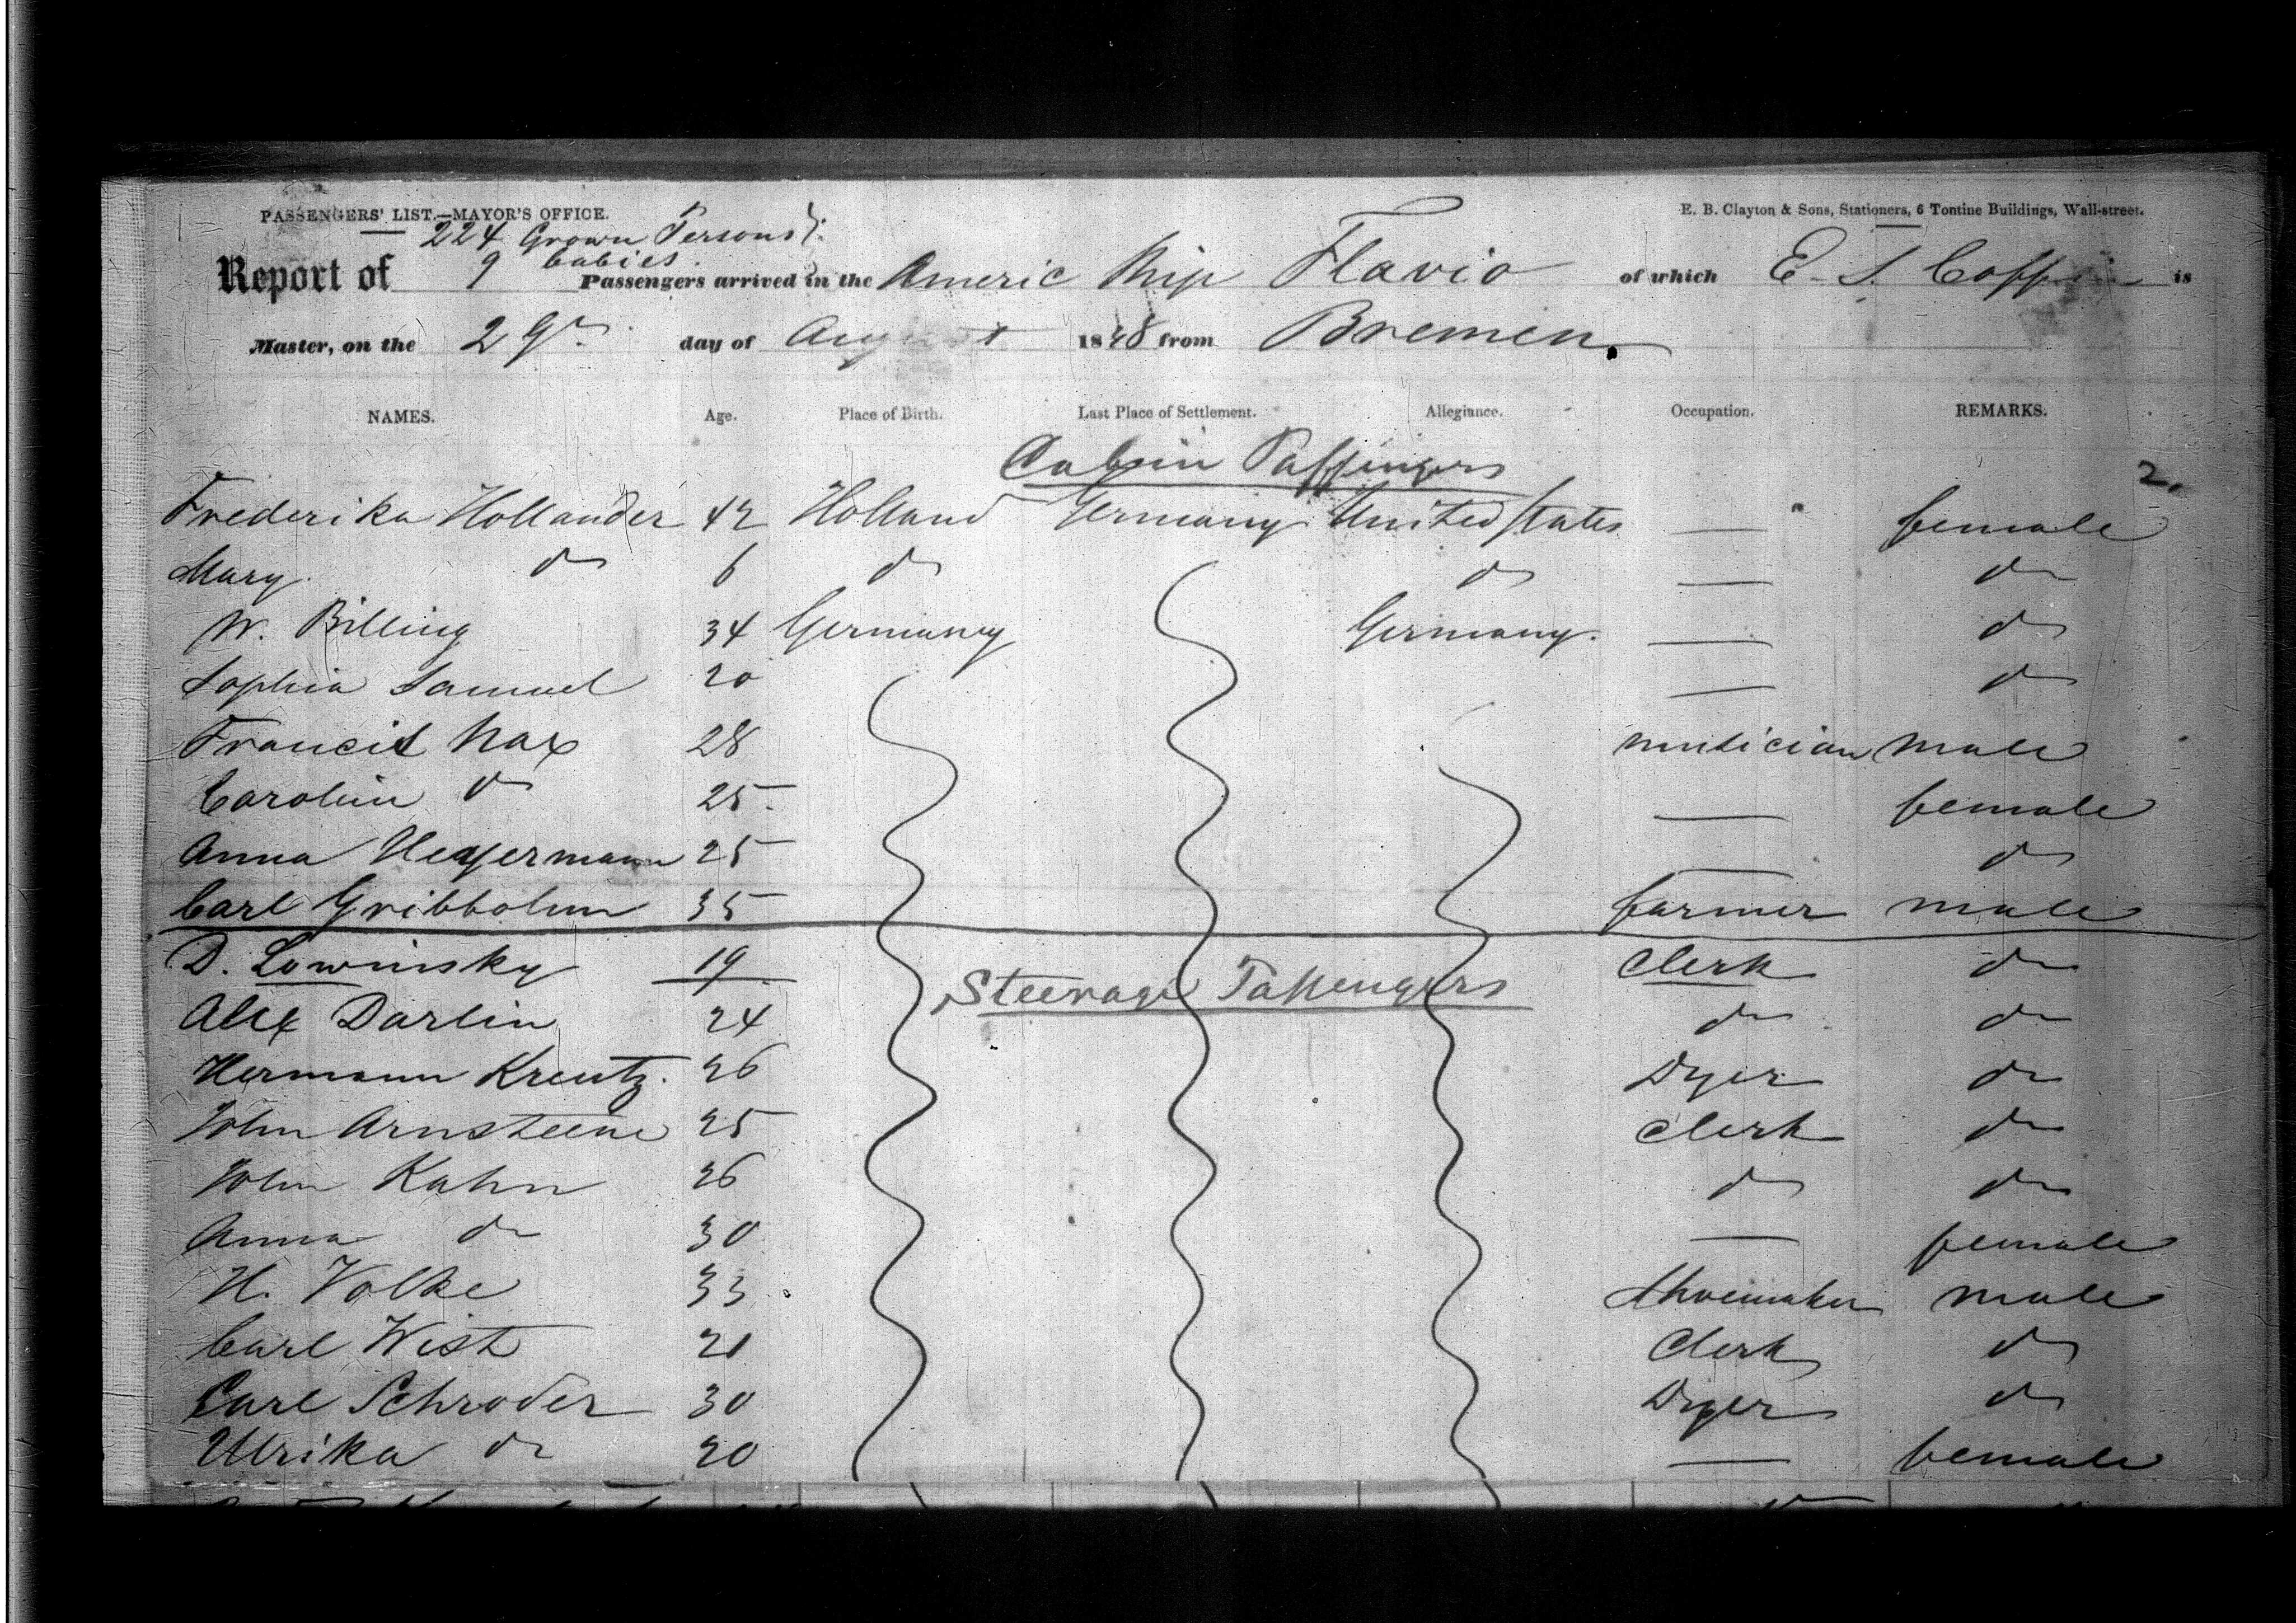 PASSENGERS' LIST.—MAYOR'S OFFICE.
E. B. Clayton & Sons, Stationers, 6 Tontine Buildings, Wall-street.
224 Grown Persons
Report of 9 babies. Passengers arrived in the Americ Ship Flavio of which E. S. Coffin is
Master, on the 29th day of August 1848 from Bremen.
NAMES. Age. Place of Birth. Last Place of Settlement. Allegiance. Occupation. REMARKS.
Cabin Passengers
2.
Frederika Hollander 42 Holland Germany United States — female
Mary do 6 do do — do
W. Billing 34 Germany Germany. — do
Sophia Samuel 20 — do
Francis Nax 28 musician male
Carolin do 25 — female
Anna Heyermann 25 — do
Carl Gribbohm 35 farmer male
D. Lowinsky 19 Clerk do
Steerage Passengers
Alex Darlin 24 do do
Hermann Kreutz. 26 Dyer do
John Arnsteene 25 Clerk do
John Kahn 26 do do
Anna do 30 — female
H. Volke 33 Shoemaker male
Carl Wist 21 Clerk do
Carl Schroder 30 Dyer do
Ulrika do 20 — female